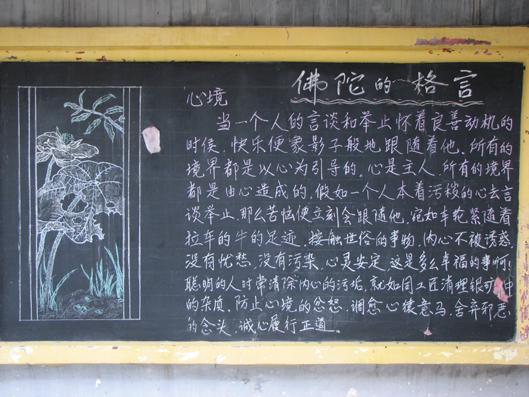 佛陀的格言
心境
当一个人的言谈和举止怀着良善动机的
时候，快乐便象影子般地跟随着他。所有的
境界都是以心为引导的，心是主人，所有的境界
都是由心造成的，假如一个人本着污秽的心去言
谈举止，那么苦恼便立刻会跟随他，宛如车轮紧随着
拉车的牛的足迹，接触世俗的事物，内心不被诱惑，
没有忧愁，没有污染，心灵安定，这是多么幸福的事啊！
聪明的人时常清除内心的污垢，就如同工匠清理银矿中
的杂质，防止心境的忿怒，调愈心猿意马，舍弃邪恶
的念头，诚心履行正道。